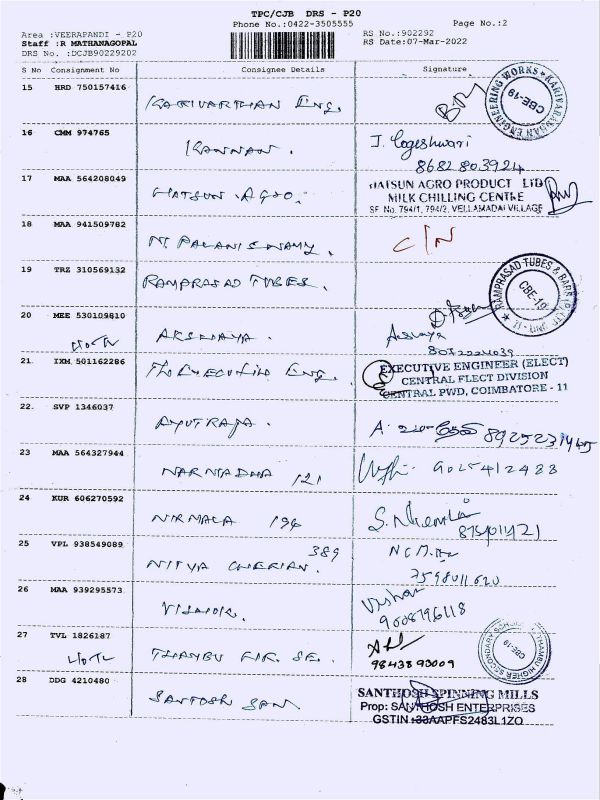 TPC/CJB DRS - P20
Phone No.:0422-3505555
Page No.:2
Area :VEERAPANDI - P20
RS No.:902292
Staff :R MATHANAGOPAL
RS Date:07-Mar-2022
DRS No. :DCJB90229202
S No Consignment No Consignee Details Signature
15 HRD 750157416 KARIVARTHAN Eng.
KARIVARADHAN ENGINEERING WORKS CBE-19
16 CMM 974765 KANNAN. J. Logeshwari
8682803924
17 MAA 564208049 HATSUN AGRO.
HATSUN AGRO PRODUCT LTD
MILK CHILLING CENTRE
SF No. 794/1, 794/2, VELLAMADAI VILLAGE
18 MAA 941509782 M. PALANISWAMY. C/N
19 TRZ 310569132 RAMPRASAD TUBES.
RAMPRASAD TUBES & CBE-19
20 MEE 530109810 AKSHAYA.
21. IXM 501162286 The EXECUTIVE Eng.
EXECUTIVE ENGINEER (ELECT)
CENTRAL ELECT DIVISION
CENTRAL PWD, COIMBATORE - 11
22. SVP 1346037 AYUTRAJA. A.
23 MAA 564327944 NARMADHA 121 9025412488
24 KUR 606270592 NIRMALA 196
25 VPL 938549089 389
NITYA CHERIAN.
7598011620
26 MAA 939295573
9008796118
27 TVL 1826187 THAMBU HR. SE.
9843893009
THAMBU HIGHER SECONDARY SCHOOL CBE-19
28 DDG 4210480 SANTOSH SAN
SANTHOSH SPINNING MILLS
Prop: SANTHOSH ENTERPRISES
GSTIN :33AAPFS2483L1ZO